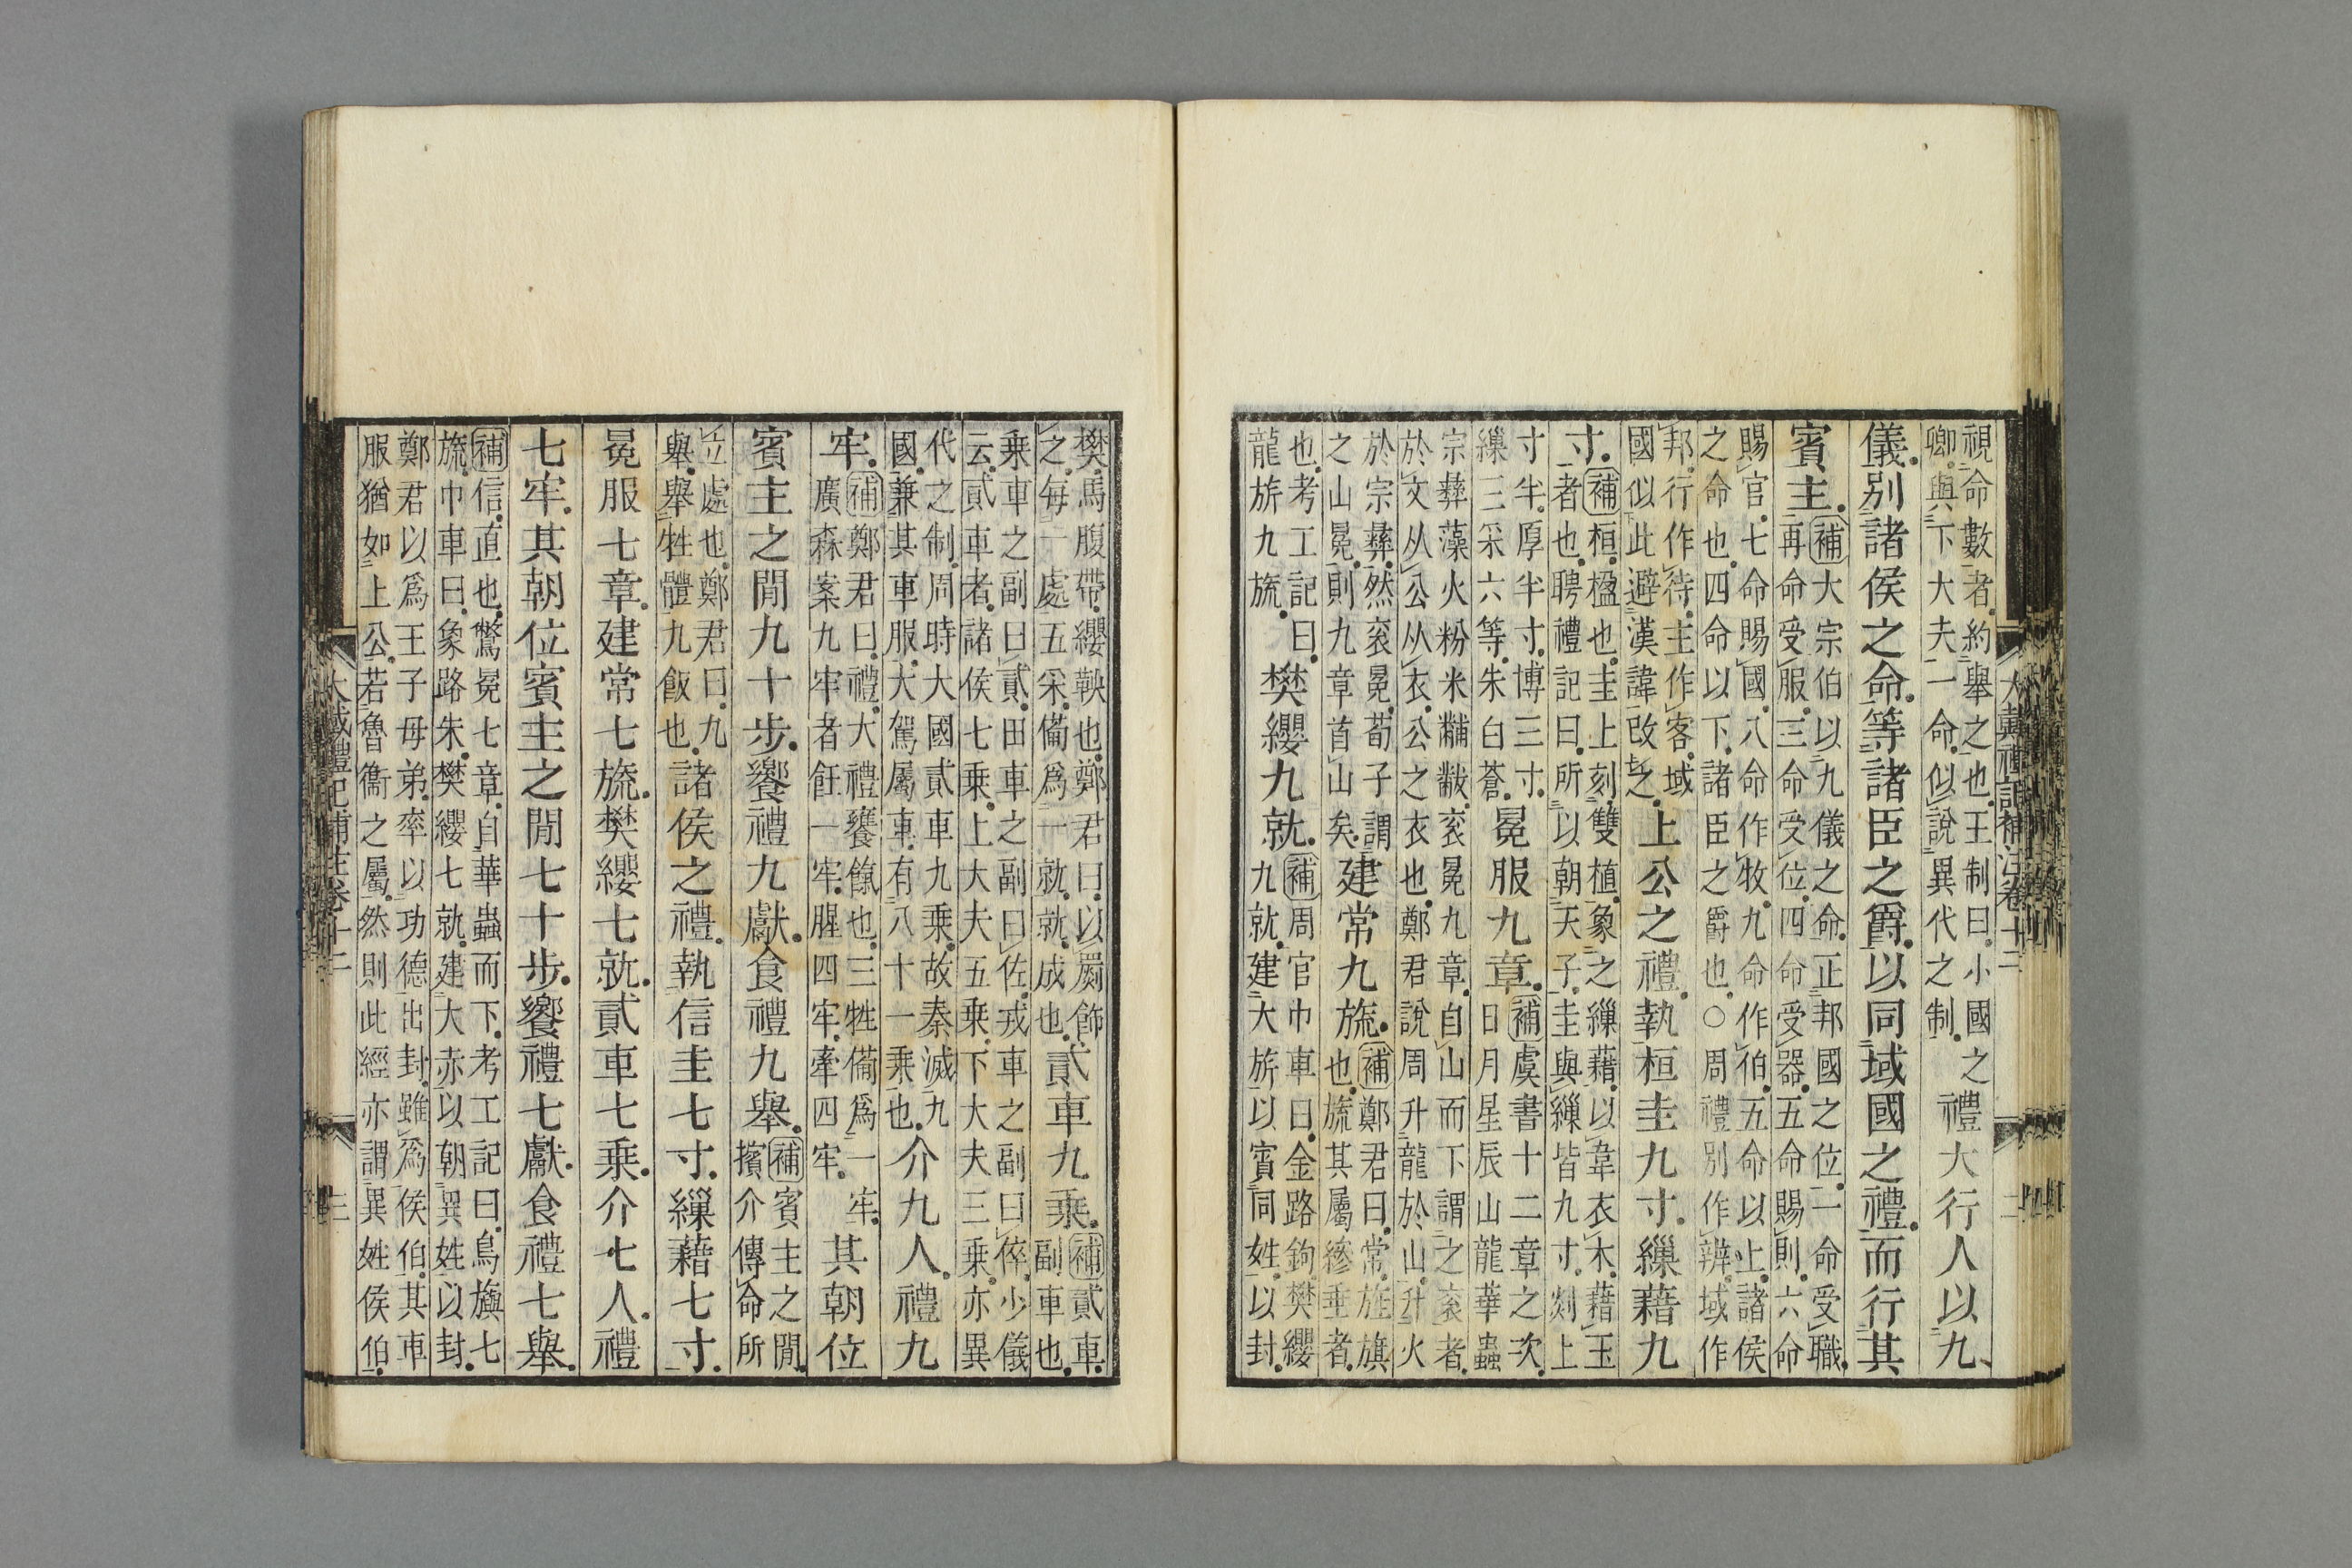 視命數者約舉之也王制曰小國之
卿與下大夫一命似說異代之制
禮大行人以九
儀別諸侯之命等諸臣之爵以同域國之禮而行其
賓主
補大宗伯以九儀之命正邦國之位一命受職
再命受服三命受位四命受器五命賜則六命
賜官七命賜國八命作牧九命作伯五命以上諸侯
之命也四命以下諸臣之爵也○周禮別作辨域作
邦行作待主作客域
國似此避漢諱改之
上公之禮執桓圭九寸繅藉九
寸
補桓楹也圭上刻雙植象之繅藉以韋衣木藉玉
者也聘禮記曰所以朝天子圭與繅皆九寸剡上
寸半厚半寸博三寸
繅三采六等朱白蒼
冕服九章
補虞書十二章之次
日月星辰山龍華蟲
宗彝藻火粉米黼黻袞冕九章自山而下謂之袞者
於文从公从衣公之衣也鄭君說周升龍於山升火
於宗彝然袞冕荀子謂
之山冕則九章首山矣
建常九旒
補鄭君曰常旌旗
也旒其屬縿垂者
也考工記曰
龍旂九旒
樊纓九就
補周官巾車曰金路鉤樊纓
九就建大旂以賓同姓以封
大戴禮記補注卷十二
二
樊馬腹帶纓鞅也鄭君曰以罽飾
之每一處五采備爲一就就成也
貳車九乘
補貳車
副車也
乘車之副曰貳田車之副曰佐戎車之副曰倅少儀
云貳車者諸侯七乘上大夫五乘下大夫三乘亦異
代之制周時大國貳車九乘故秦滅九
國兼其車服大駕屬車有八十一乘也
介九人禮九
牢
補鄭君曰禮大禮饔餼也三牲備爲一牢
廣森案九牢者飪一牢腥四牢牽四牢
其朝位
賓主之閒九十步饗禮九獻食禮九舉
補賓主之閒
擯介傳命所
立處也鄭君曰九
舉舉牲體九飯也
諸侯之禮執信圭七寸繅藉七寸
冕服七章建常七旒樊纓七就貳車七乘介七人禮
七牢其朝位賓主之閒七十步饗禮七獻食禮七舉
補信直也鷩冕七章自華蟲而下考工記曰鳥旟七
旒巾車曰象路朱樊纓七就建大赤以朝異姓以封
鄭君以爲王子母弟率以功德出封雖爲侯伯其車
服猶如上公若魯衞之屬然則此經亦謂異姓侯伯
大戴禮記補注卷十二
三